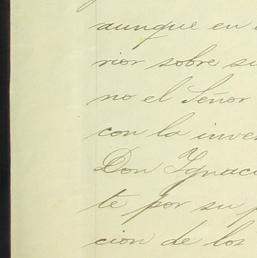 aunque en
rior sobre su
no el Señor
con la inven
Don Ignaci
te por su p
cion de los